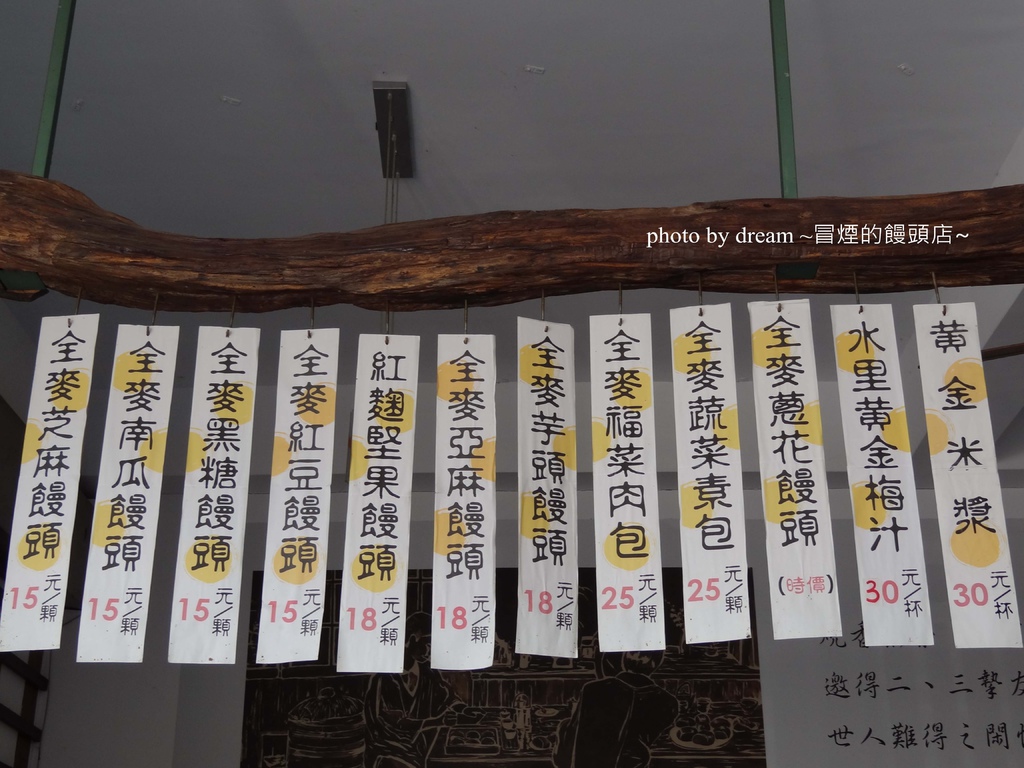 photo by dream ~冒煙的饅頭店~
全麥芝麻饅頭
15元/顆
全麥南瓜饅頭
15元/顆
全麥黑糖饅頭
15元/顆
全麥紅豆饅頭
15元/顆
紅麴堅果饅頭
18元/顆
全麥亞麻饅頭
18元/顆
全麥芋頭饅頭
18元/顆
全麥福菜肉包
25元/顆
全麥蔬菜素包
25元/顆
全麥蔥花饅頭
(時價)
水里黃金梅汁
30元/杯
黃金米漿
30元/杯
邀得二、三摯友
世人難得之閒